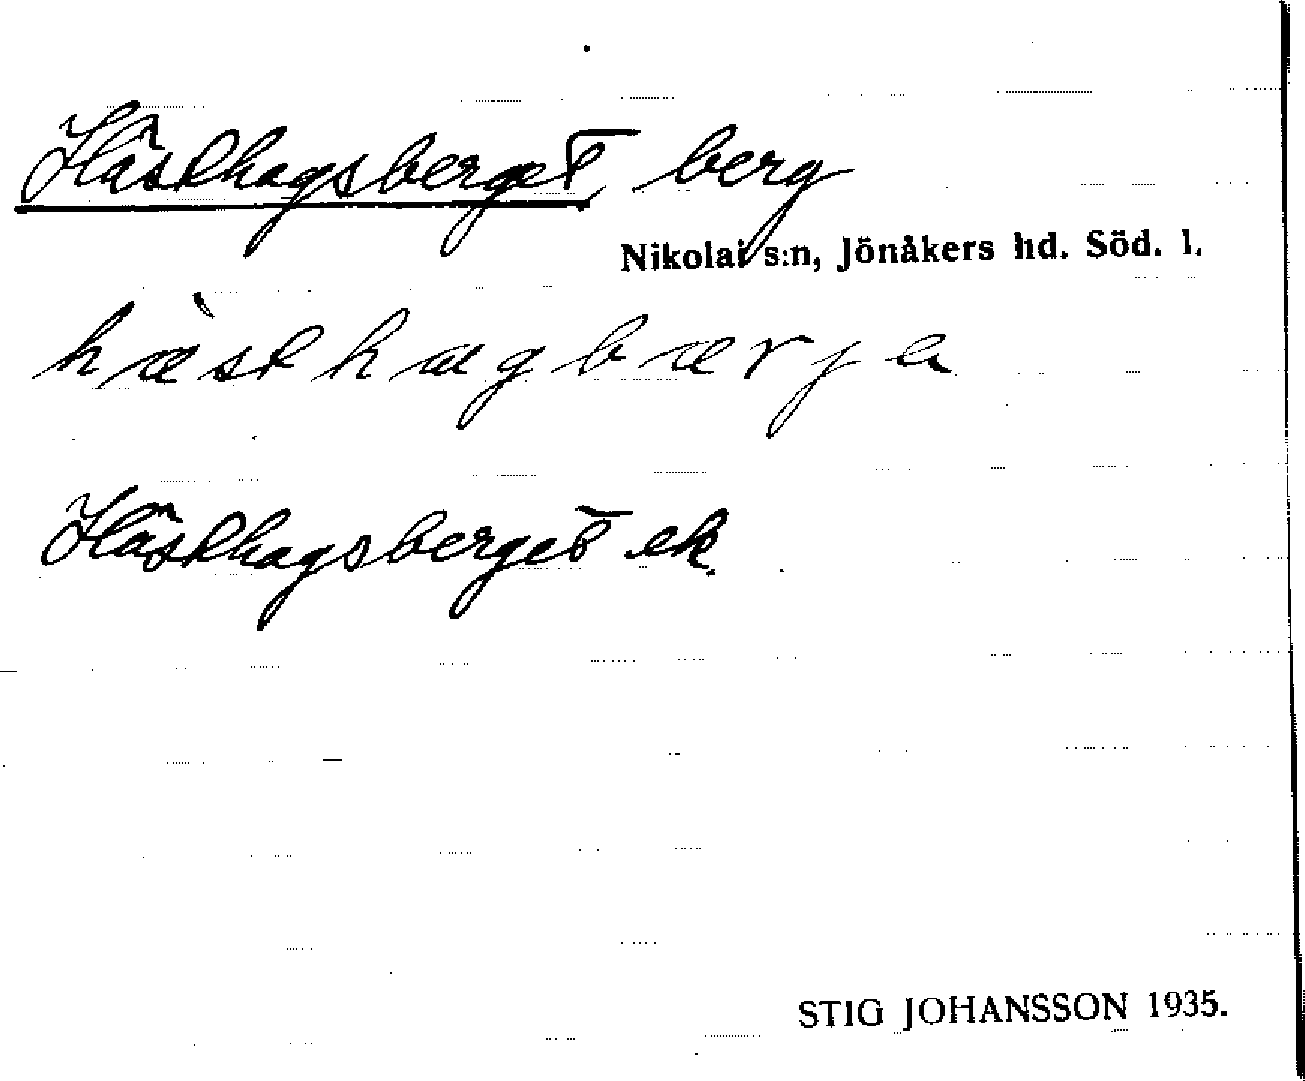 Hästhagsberget, berg
Nikolai s:n, Jönåkers hd. Söd. l.
hæ̀sthagbærja
Hästhagsberget ek.
STIG JOHANSSON 1935.